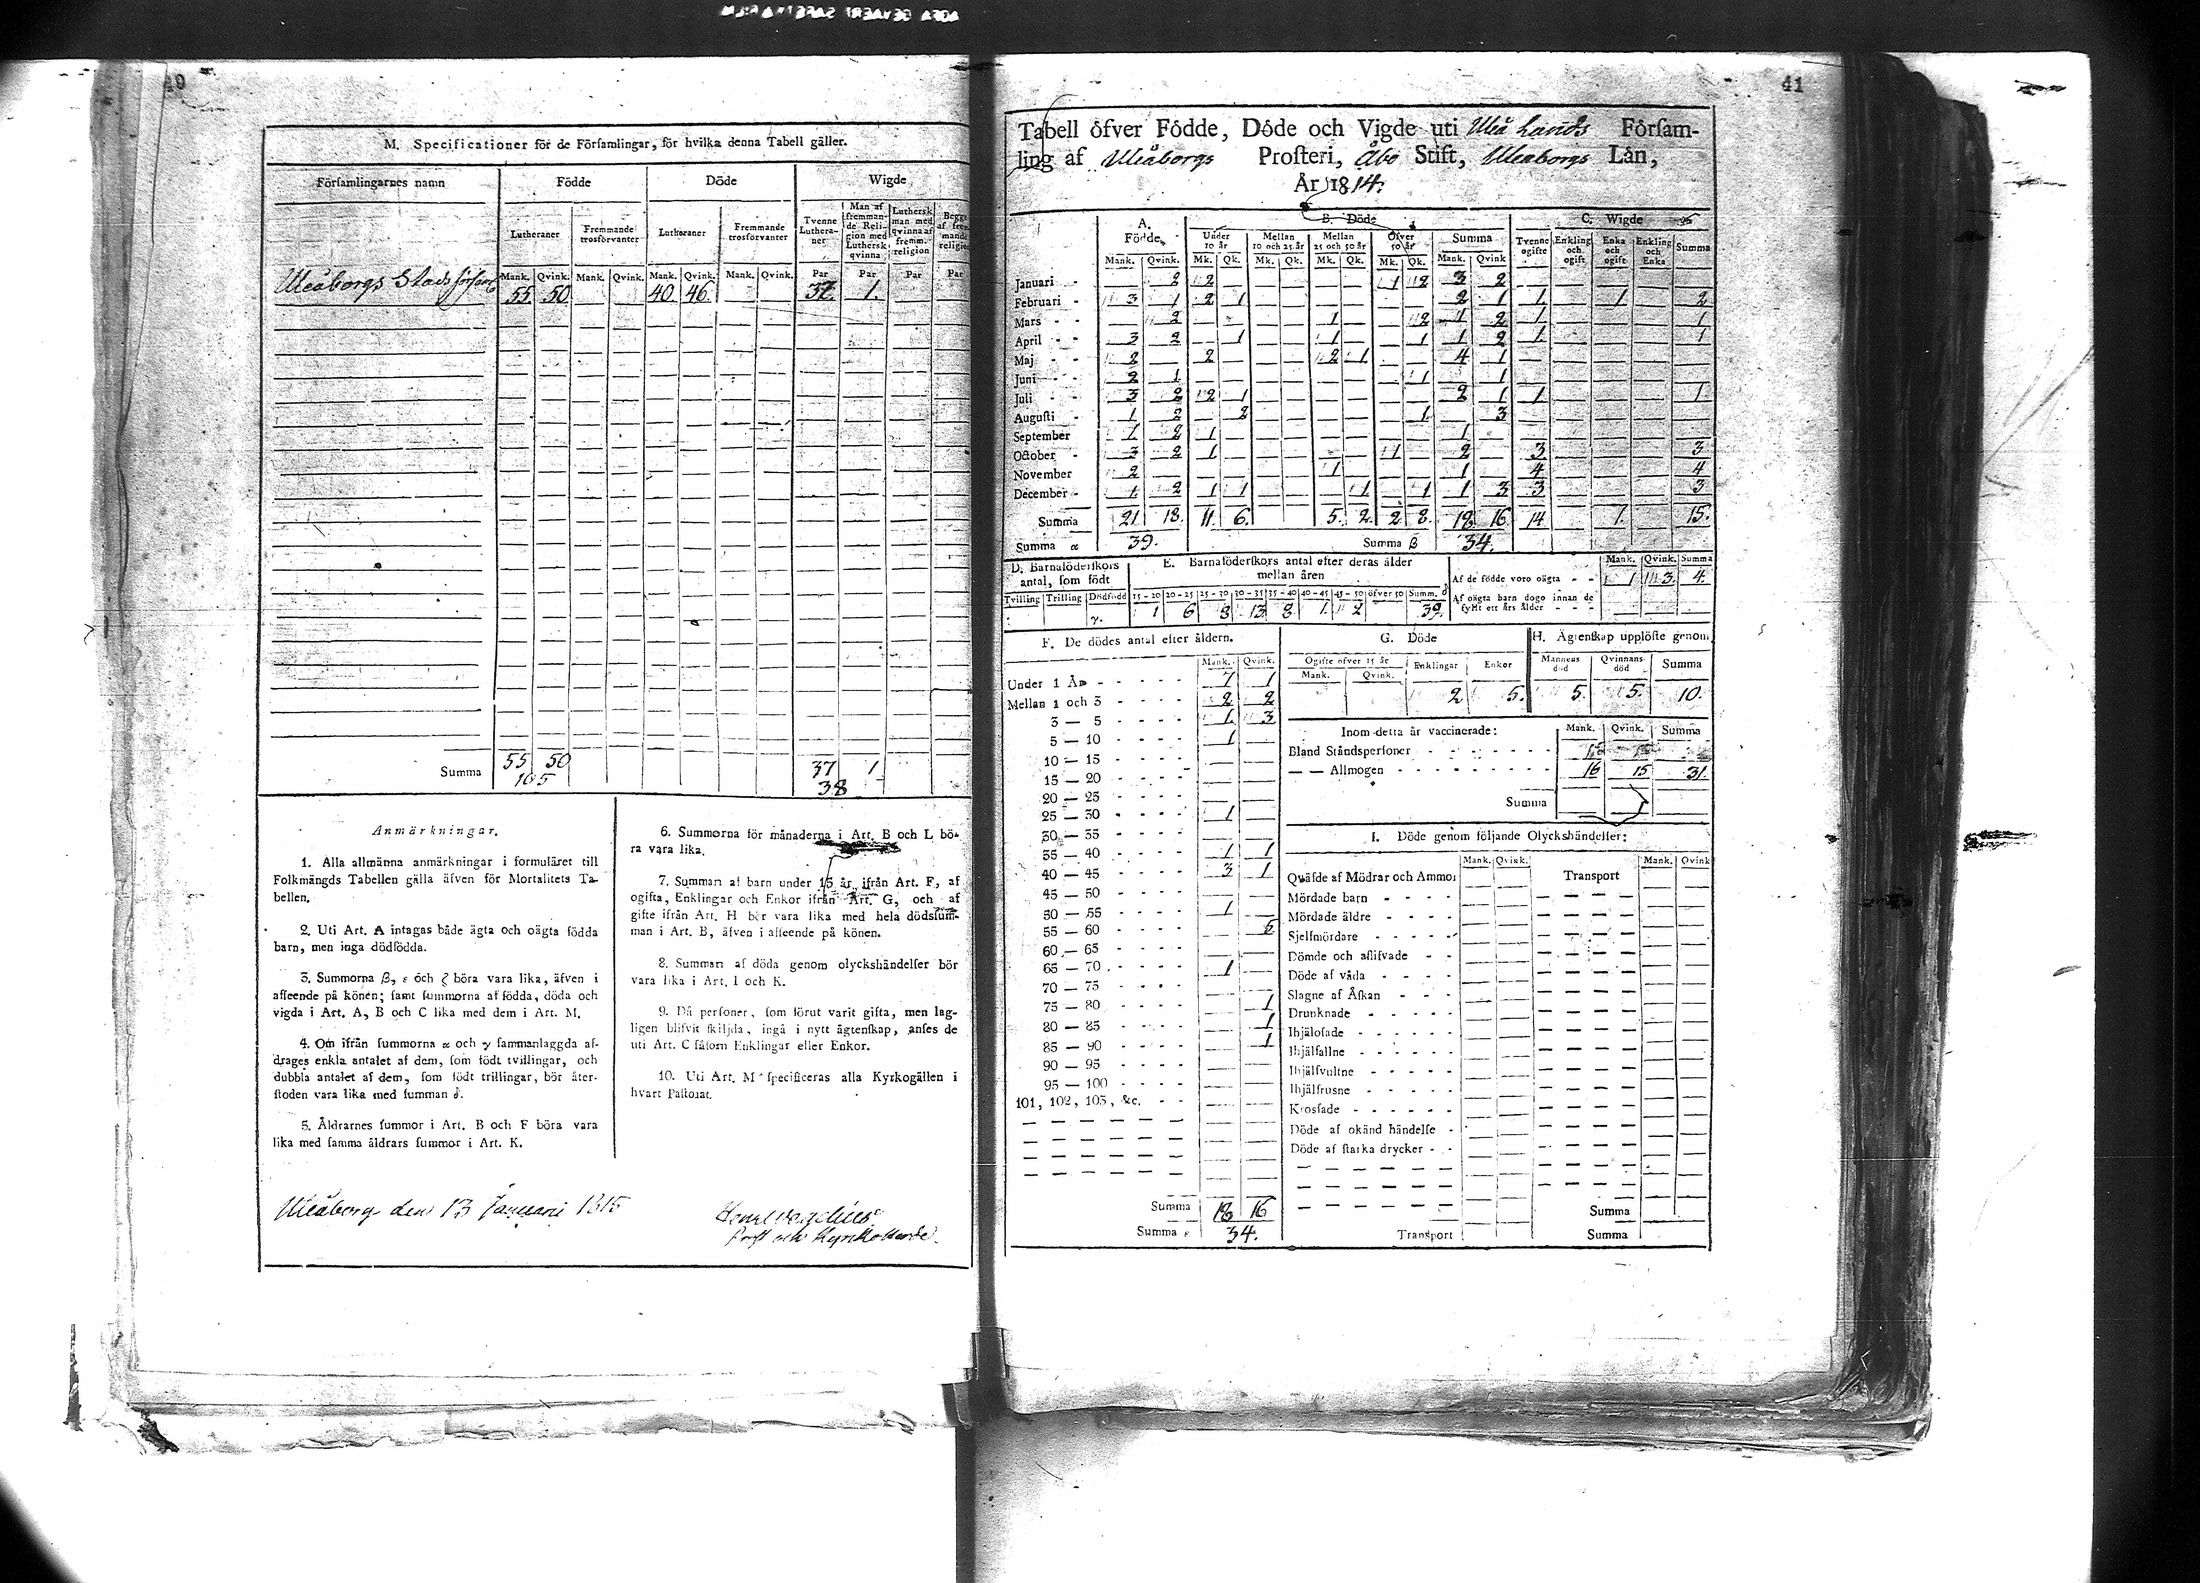 40
M. Specificationer för de Församlingar, för hvilka denna Tabell gäller.
Församlingarnes namn Födde Döde Wigde
Lutheraner Fremmande trosförvanter Lutheraner Fremmande trosförvanter Tvenne Lutheraner Man af fremmande Religion med Luthersk qvinna Luthersk man med qvinna af fremm. religion
Mank. Qvink. Mank. Qvink. Mank. Qvink. Mank. Qvink. Par Par Par Par
Uleåborgs Stads 55 50 40 46 37 1
Summa 55 50 37 1
105 38
Anmärkningar.
1. Alla allmänna anmärkningar i formuläret till
Folkmängds Tabellen gälla äfven för Mortalitets Ta-
bellen.
2. Uti Art. A intagas både ägta och oägta födda
barn, men inga dödfödda.
3. Summorna β, ε och ζ böra vara lika, äfven i
afseende på könen; samt summorna af födda, döda och
vigda i Art. A, B och C lika med dem i Art. M.
4. Om ifrån summorna α och γ sammanlaggda af-
drages enkla antalet af dem, som födt tvillingar, och
dubbla antalet af dem, som födt trillingar, bör åter-
stoden vara lika med summan δ.
5. Åldrarnes summor i Art. B och F böra vara
lika med samma åldrars summor i Art. K.
6. Summorna för månaderna i Art. B och L bö-
ra vara lika.
7. Summan af barn under 15 år ifrån Art. F, af
ogifta, Enklingar och Enkor ifrån Art. G, och af
gifte ifrån Art. H bör vara lika med hela dödssum-
man i Art. B, äfven i afseende på könen.
8. Summan af döda genom olyckshändelser bör
vara lika i Art. I och K.
9. Då personer, som förut varit gifta, men lag-
ligen blifvit skiljda, ingå i nytt ägtenskap, anses de
uti Art. C såsom Enklingar eller Enkor.
10. Uti Art. M specificeras alla Kyrkogällen i
hvart Pastorat.
Uleåborg den 13 Januari 1815
Prost och Kyrkoherde.
41
Tabell öfver Födde, Döde och Vigde uti Uleå Lands Församling
ling af Uleåborgs Prosteri, Åbo Stift, Uleaborgs Län,
År 1814.
A. Födde B. Döde C. Wigde
Under 10 år Mellan 10 och 25 år Mellan 25 och 50 år Öfver 50 år Summa Tvenne ogifte Enkling och ogift Enka och ogift Enkling och Enka Summa
Mank. Qvink. Mk. Qk. Mk. Qk. Mk. Qk. Mk. Qk. Mank. Qvink
Januari 2 2 1 2 3 2
Februari 3 1 2 1 2 1 1 1 2
Mars 2 1 2 1 2 1 1
April 3 2 1 1 1 1 2 1 1
Maj 2 2 2 1 4 1
Juni 2 1 1 1
Juli 3 2 2 1 2 1 1 1
Augusti 1 2 2 1 3
September 1 2 1 1
October 3 2 1 1 2 3 3
November 2 1 1 4 4
December 1 2 1 1 1 1 1 3 3 3
Summa 21 18. 11. 6. 5. 2. 2 8. 18 16 14 1. 15.
Summa α 39. Summa β 34.
D. Barnaföderskors antal, som födt
Tvilling Trilling Dödfödd
γ.
E. Barnaföderskors antal efter deras ålder mellan åren
15-20 20-25 25-30 30-35 35-40 40-45 45-50 öfver 50 Summ. δ
1 6 8 13 8 1. 2 39.
Mank. Qvink. Summa
Af de födde voro oägta 1 3 4.
Af oägta barn dogo innan de fyllt ett års ålder
F. De dödes antal efter åldern.
Mank. Qvink.
Under 1 År 7 1
Mellan 1 och 3 2 2
3 — 5 1 3
5 — 10 1
10 — 15
15 — 20
20 — 25
25 — 30 1
30 — 35
35 — 40 1 1
40 — 45 3 1
45 — 50
50 — 55 1
55 — 60
60 — 65
65 — 70 1
70 — 75
75 — 80 1
80 — 85 1
85 — 90 1
90 — 95
95 — 100
101, 102, 103, &c.
Summa 18 16
Summa ε 34.
G. Döde
Ogifte öfver 15 år Enklingar Enkor
Mank. Qvink.
2 5.
H. Ägtenskap upplöste genom
Mannens död Qvinnans död Summa
5. 5. 10.
Inom detta år vaccinerade: Mank. Qvink. Summa
Bland Ståndspersoner
— — Allmogen 16 15 31.
Summa
I. Döde genom följande Olyckshändelser:
Mank. Qvink. Mank. Qvink
Qväfde af Mödrar och Ammor Transport
Mördade barn
Mördade äldre
Sjelfmördare
Dömde och aflifvade
Döde af våda
Slagne af Åskan
Drunknade
Ihjälosade
Ihjälfallne
Ihjälsvultne
Ihjälfrusne
Krossade
Döde af okänd händelse
Döde af starka drycker
Summa
Transport Summa